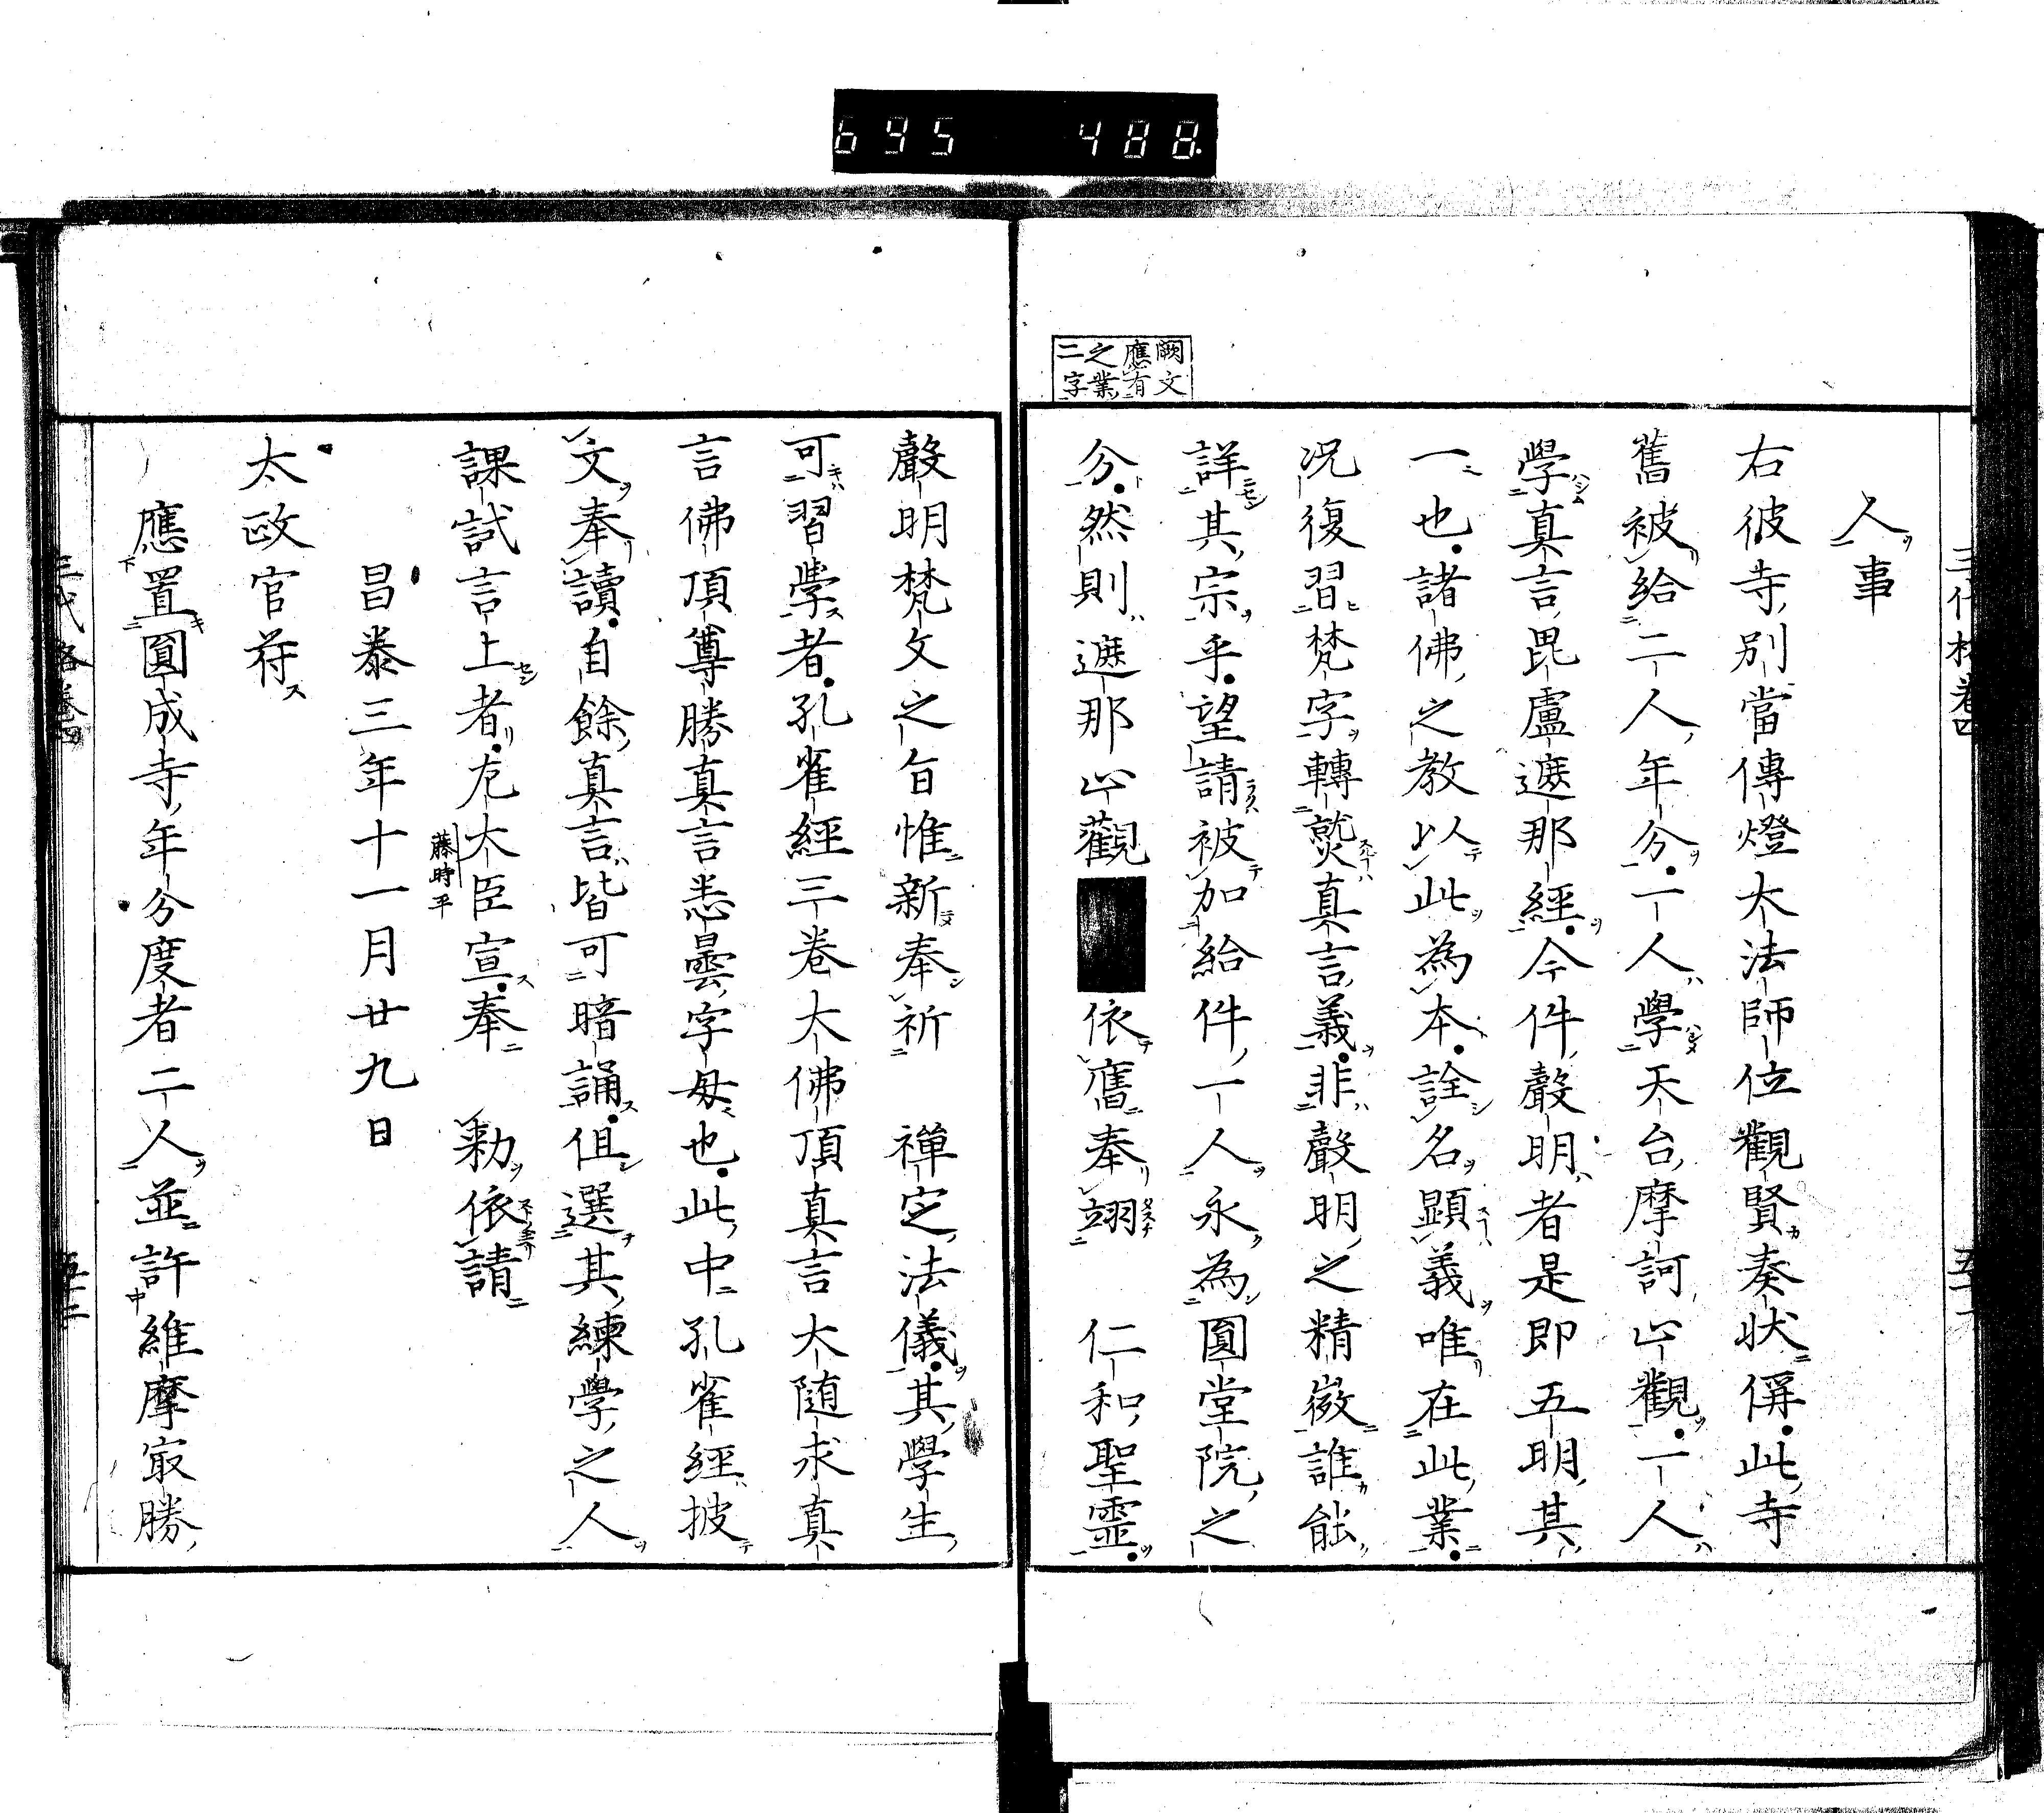 695 488
闕文
應有
之業
二字
人事
右彼寺別當傳燈大法師位觀賢奏状偁此寺
舊被給二人年分一人學天台摩訶止觀一人
學真言毘盧遮那經今件聲明者是即五明其
一也諸佛之教以此為本詮名顯義唯在此業
況復習梵字轉觀真言義非聲明之精微誰能
詳其宗乎望請被加給件一人永為圓堂院之
分然則遮那止觀
依舊奉翊 仁和聖靈
聲明梵文之旨惟新奉祈 禪定法儀其學生
可習學者孔雀經三卷大佛頂真言大随求真
言佛頂尊勝真言悉曇字母也此中孔雀經披
文奉讀自餘真言皆可暗誦但選其練學之人
課試言上者左大臣宣奉 勅依請
藤時平
昌泰三年十一月廿九日
太政官符
應置圓成寺年分度者二人並許維摩最勝